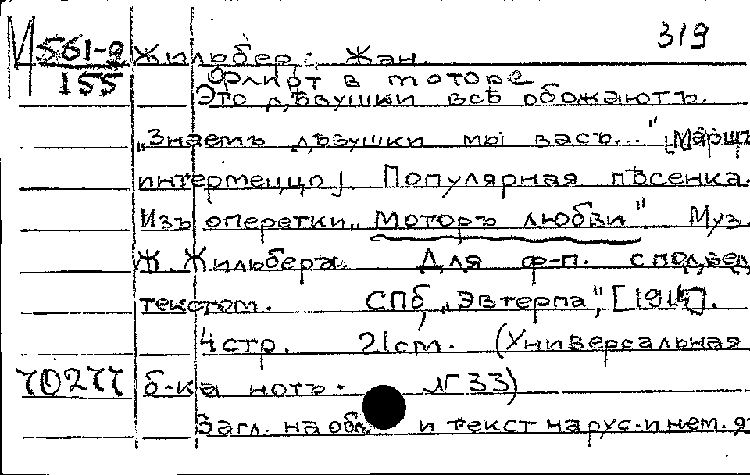 319
М 561-2 Жильбер: Жан.
155 Флирт в моторе
Это дѣвушки всѣ обожаютъ.
„Знаемъ дѣвушки мы васъ..." [Маршъ
интермеццо]. Популярная пѣсенка.
Изъ оперетки „Моторъ любви". Муз.
Ж. Жильбера. Для ф-п. с подвед
текстом. СПб, „Эвтерпа", [191 ].
4 стр. 21 cm. (Универсальная
70277 б-ка нотъ. № 33)
Загл. на обл и текст на рус. и нем. я